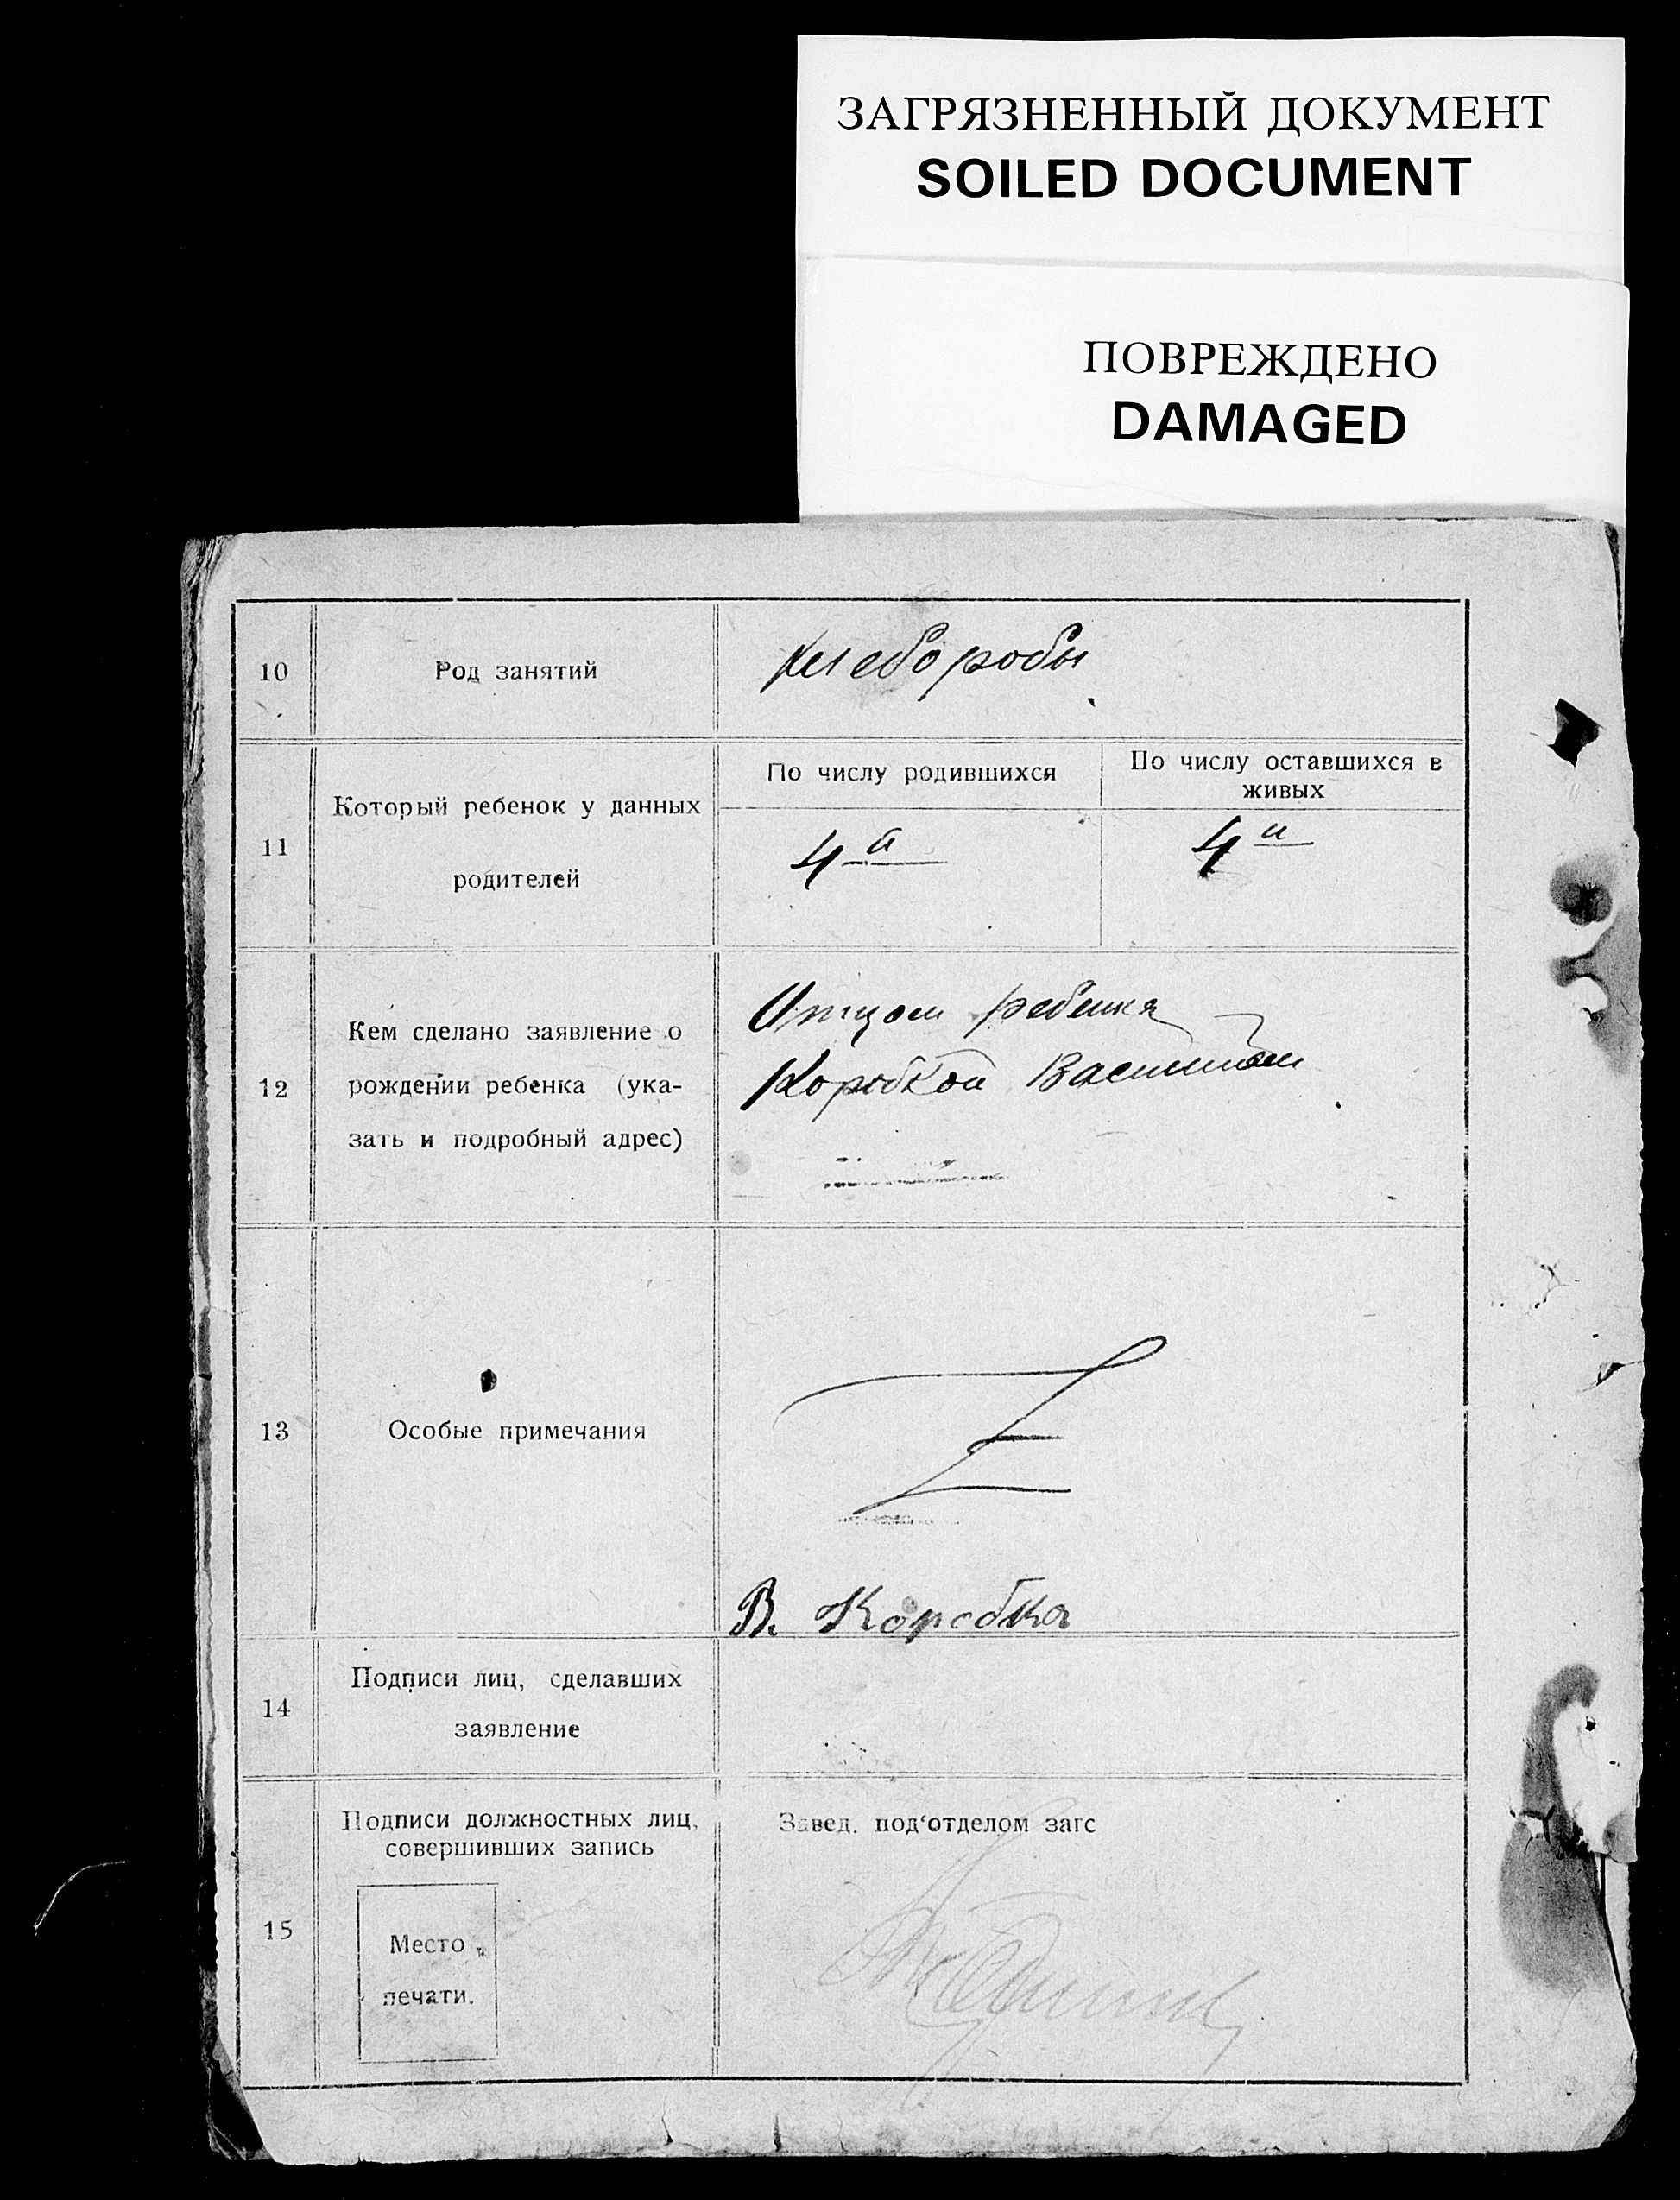 ЗАГРЯЗНЕННЫЙ ДОКУМЕНТ
SOILED DOCUMENT
ПОВРЕЖДЕНО
DAMAGED
10
Род занятий
хлеборобы
11
Который ребенок у данных
родителей
По числу родившихся
По числу оставшихся в
живых
4й
4й
12
Кем сделано заявление о
рождении ребенка (ука-
зать и подробный адрес)
Отцом ребенка
Коробкой Василием
13
Особые примечания
В. Коробка
14
Подписи лиц, сделавших
заявление
15
Подписи должностных лиц,
совершивших запись
Место
печати.
Завед. под‘отделом загс